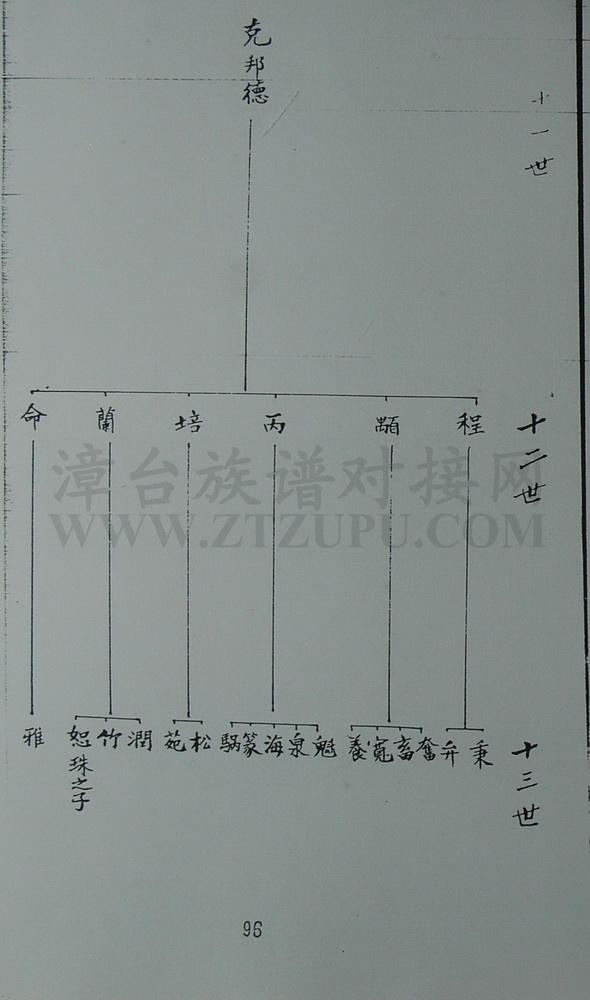 十一世
克邦德
十二世
程
顒
丙
培
蘭
命
漳台族谱对接网
WWW.ZTZUPU.COM
十三世
秉
弁
奮
畜
寬
養
魁
泉
海
篆
騧
松
苑
潤
竹
恕珠之子
雅
96